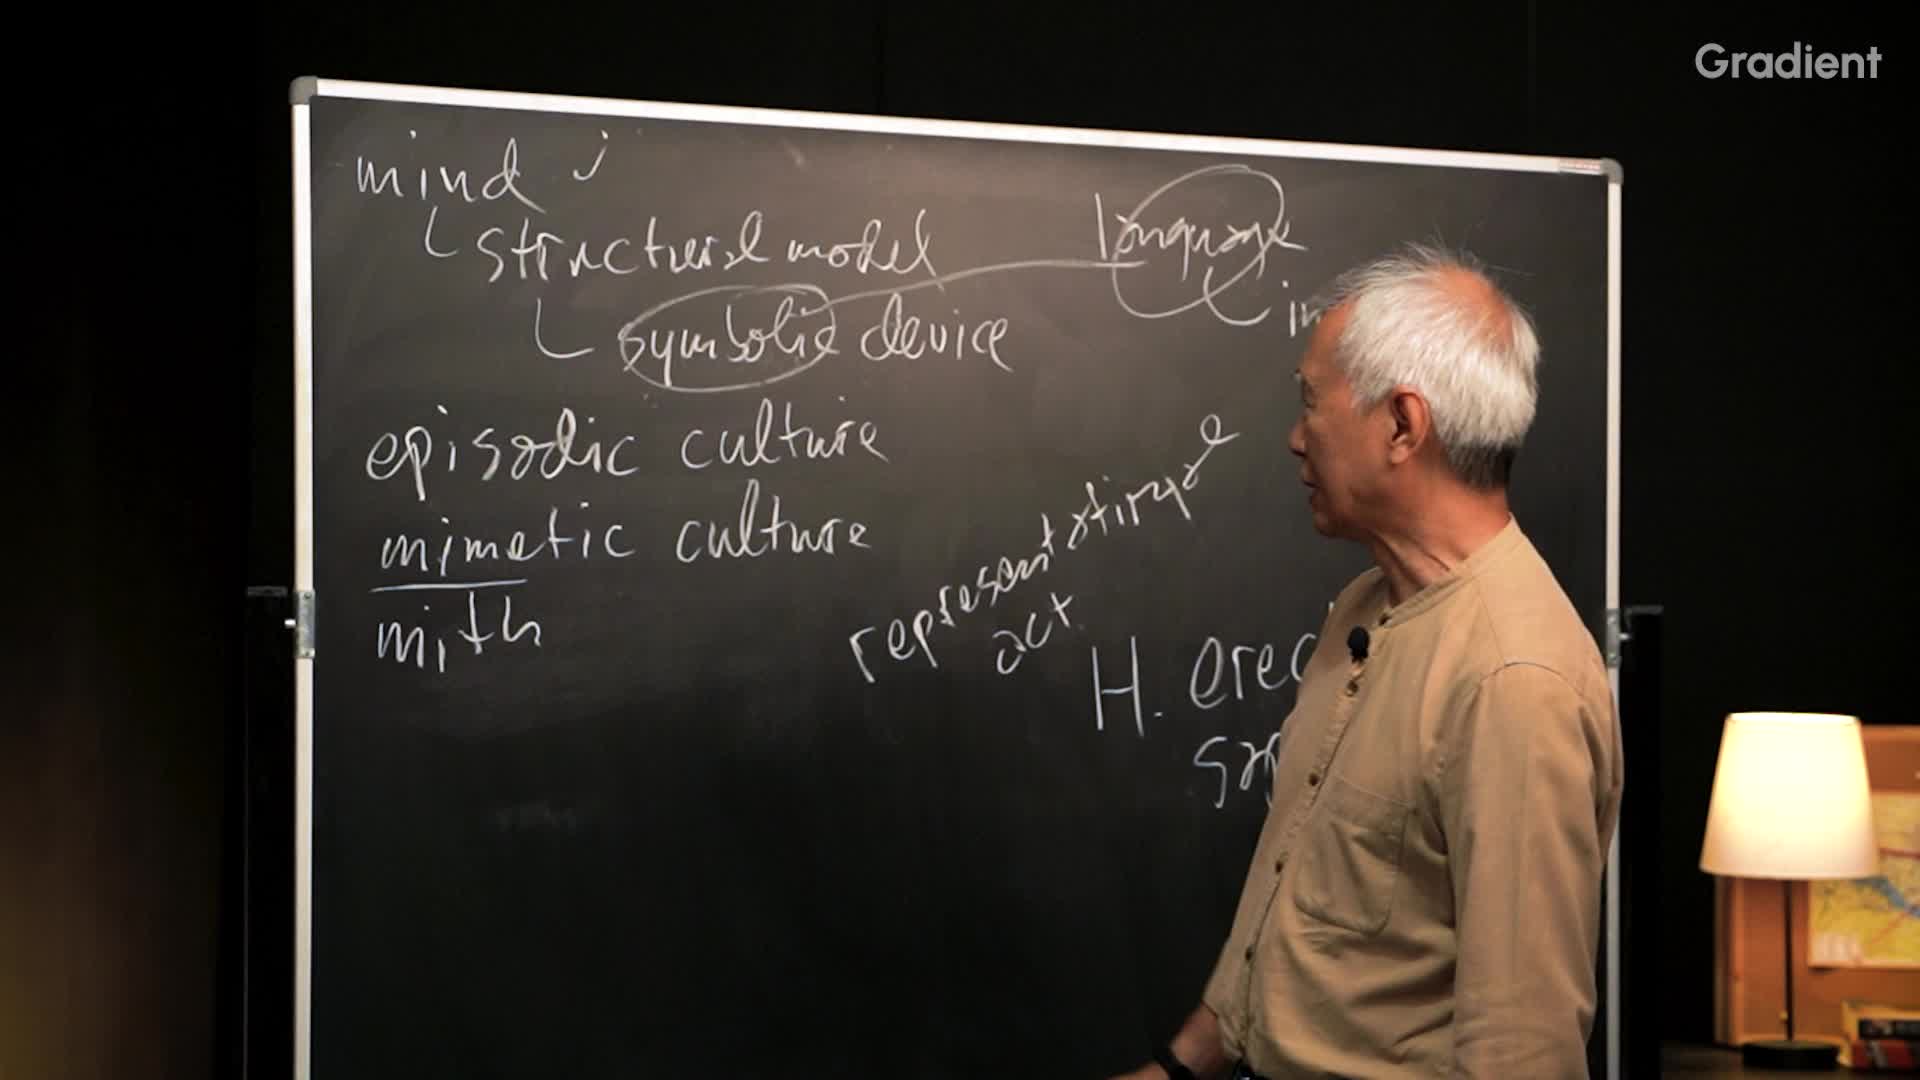 Gradient
mind
structural model
symbolic device
language
in
episodic culture
mimetic culture
mith
act
H. erec